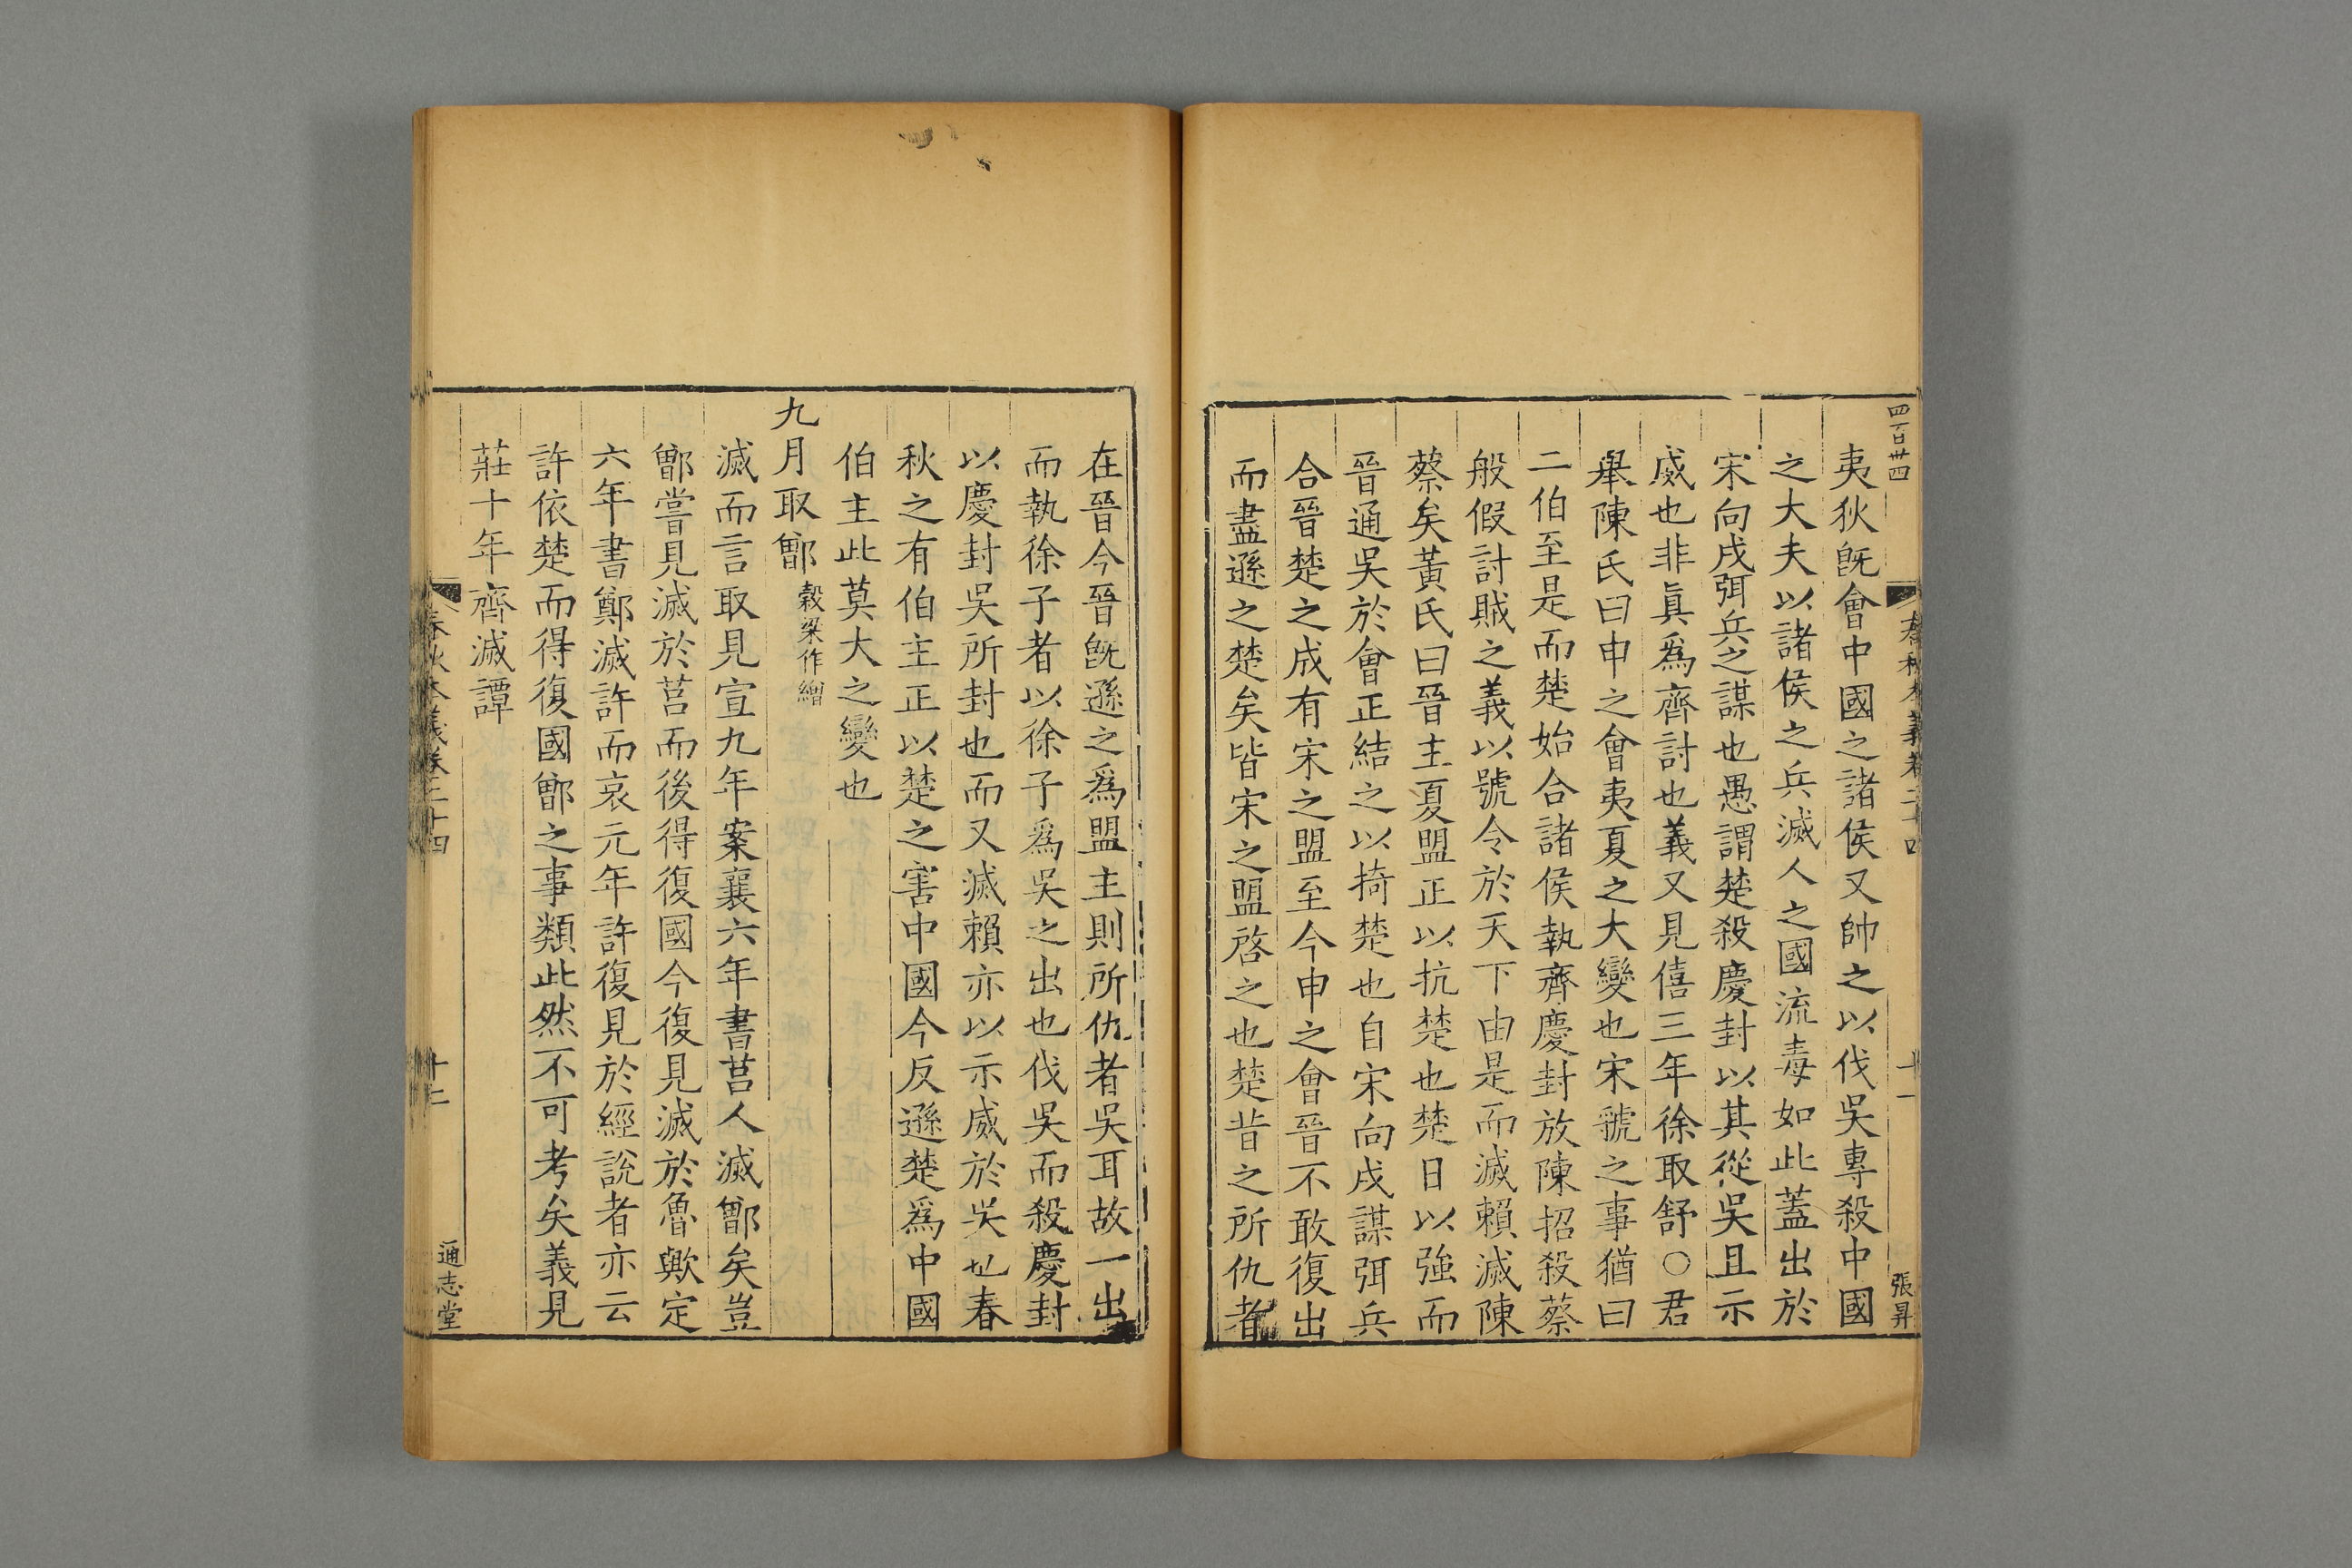 四百廿四
春秋本義卷二十四
十一
張昇
夷狄旣會中國之諸侯又帥之以伐吳專殺中國
之大夫以諸侯之兵滅人之國流毒如此蓋出於
宋向戌弭兵之謀也愚謂楚殺慶封以其從吳且示
威也非眞爲齊討也義又見僖三年徐取舒○君
舉陳氏曰申之會夷夏之大變也宋虢之事猶曰
二伯至是而楚始合諸侯執齊慶封放陳招殺蔡
般假討賊之義以號令於天下由是而滅賴滅陳
蔡矣黃氏曰晉主夏盟正以抗楚也楚日以強而
晉通吳於會正結之以掎楚也自宋向戌謀弭兵
合晉楚之成有宋之盟至今申之會晉不敢復出
而盡遜之楚矣皆宋之盟啓之也楚昔之所仇者
在晉今晉旣遜之爲盟主則所仇者吳耳故一出
而執徐子者以徐子爲吳之出也伐吳而殺慶封
以慶封吳所封也而又滅賴亦以示威於吳也春
秋之有伯主正以楚之害中國今反遜楚爲中國
伯主此莫大之變也
九月取鄫穀梁作繒
滅而言取見宣九年案襄六年書莒人滅鄫矣豈
鄫嘗見滅於莒而後得復國今復見滅於魯歟定
六年書鄭滅許而哀元年許復見於經說者亦云
許依楚而得復國鄫之事類此然不可考矣義見
莊十年齊滅譚
春秋本義卷二十四
十二
通志堂